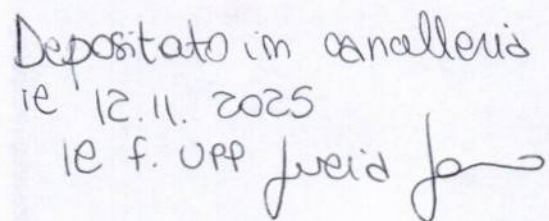 Depositato in cancelleria
il 12.11.2025
il f. UPP Lucia